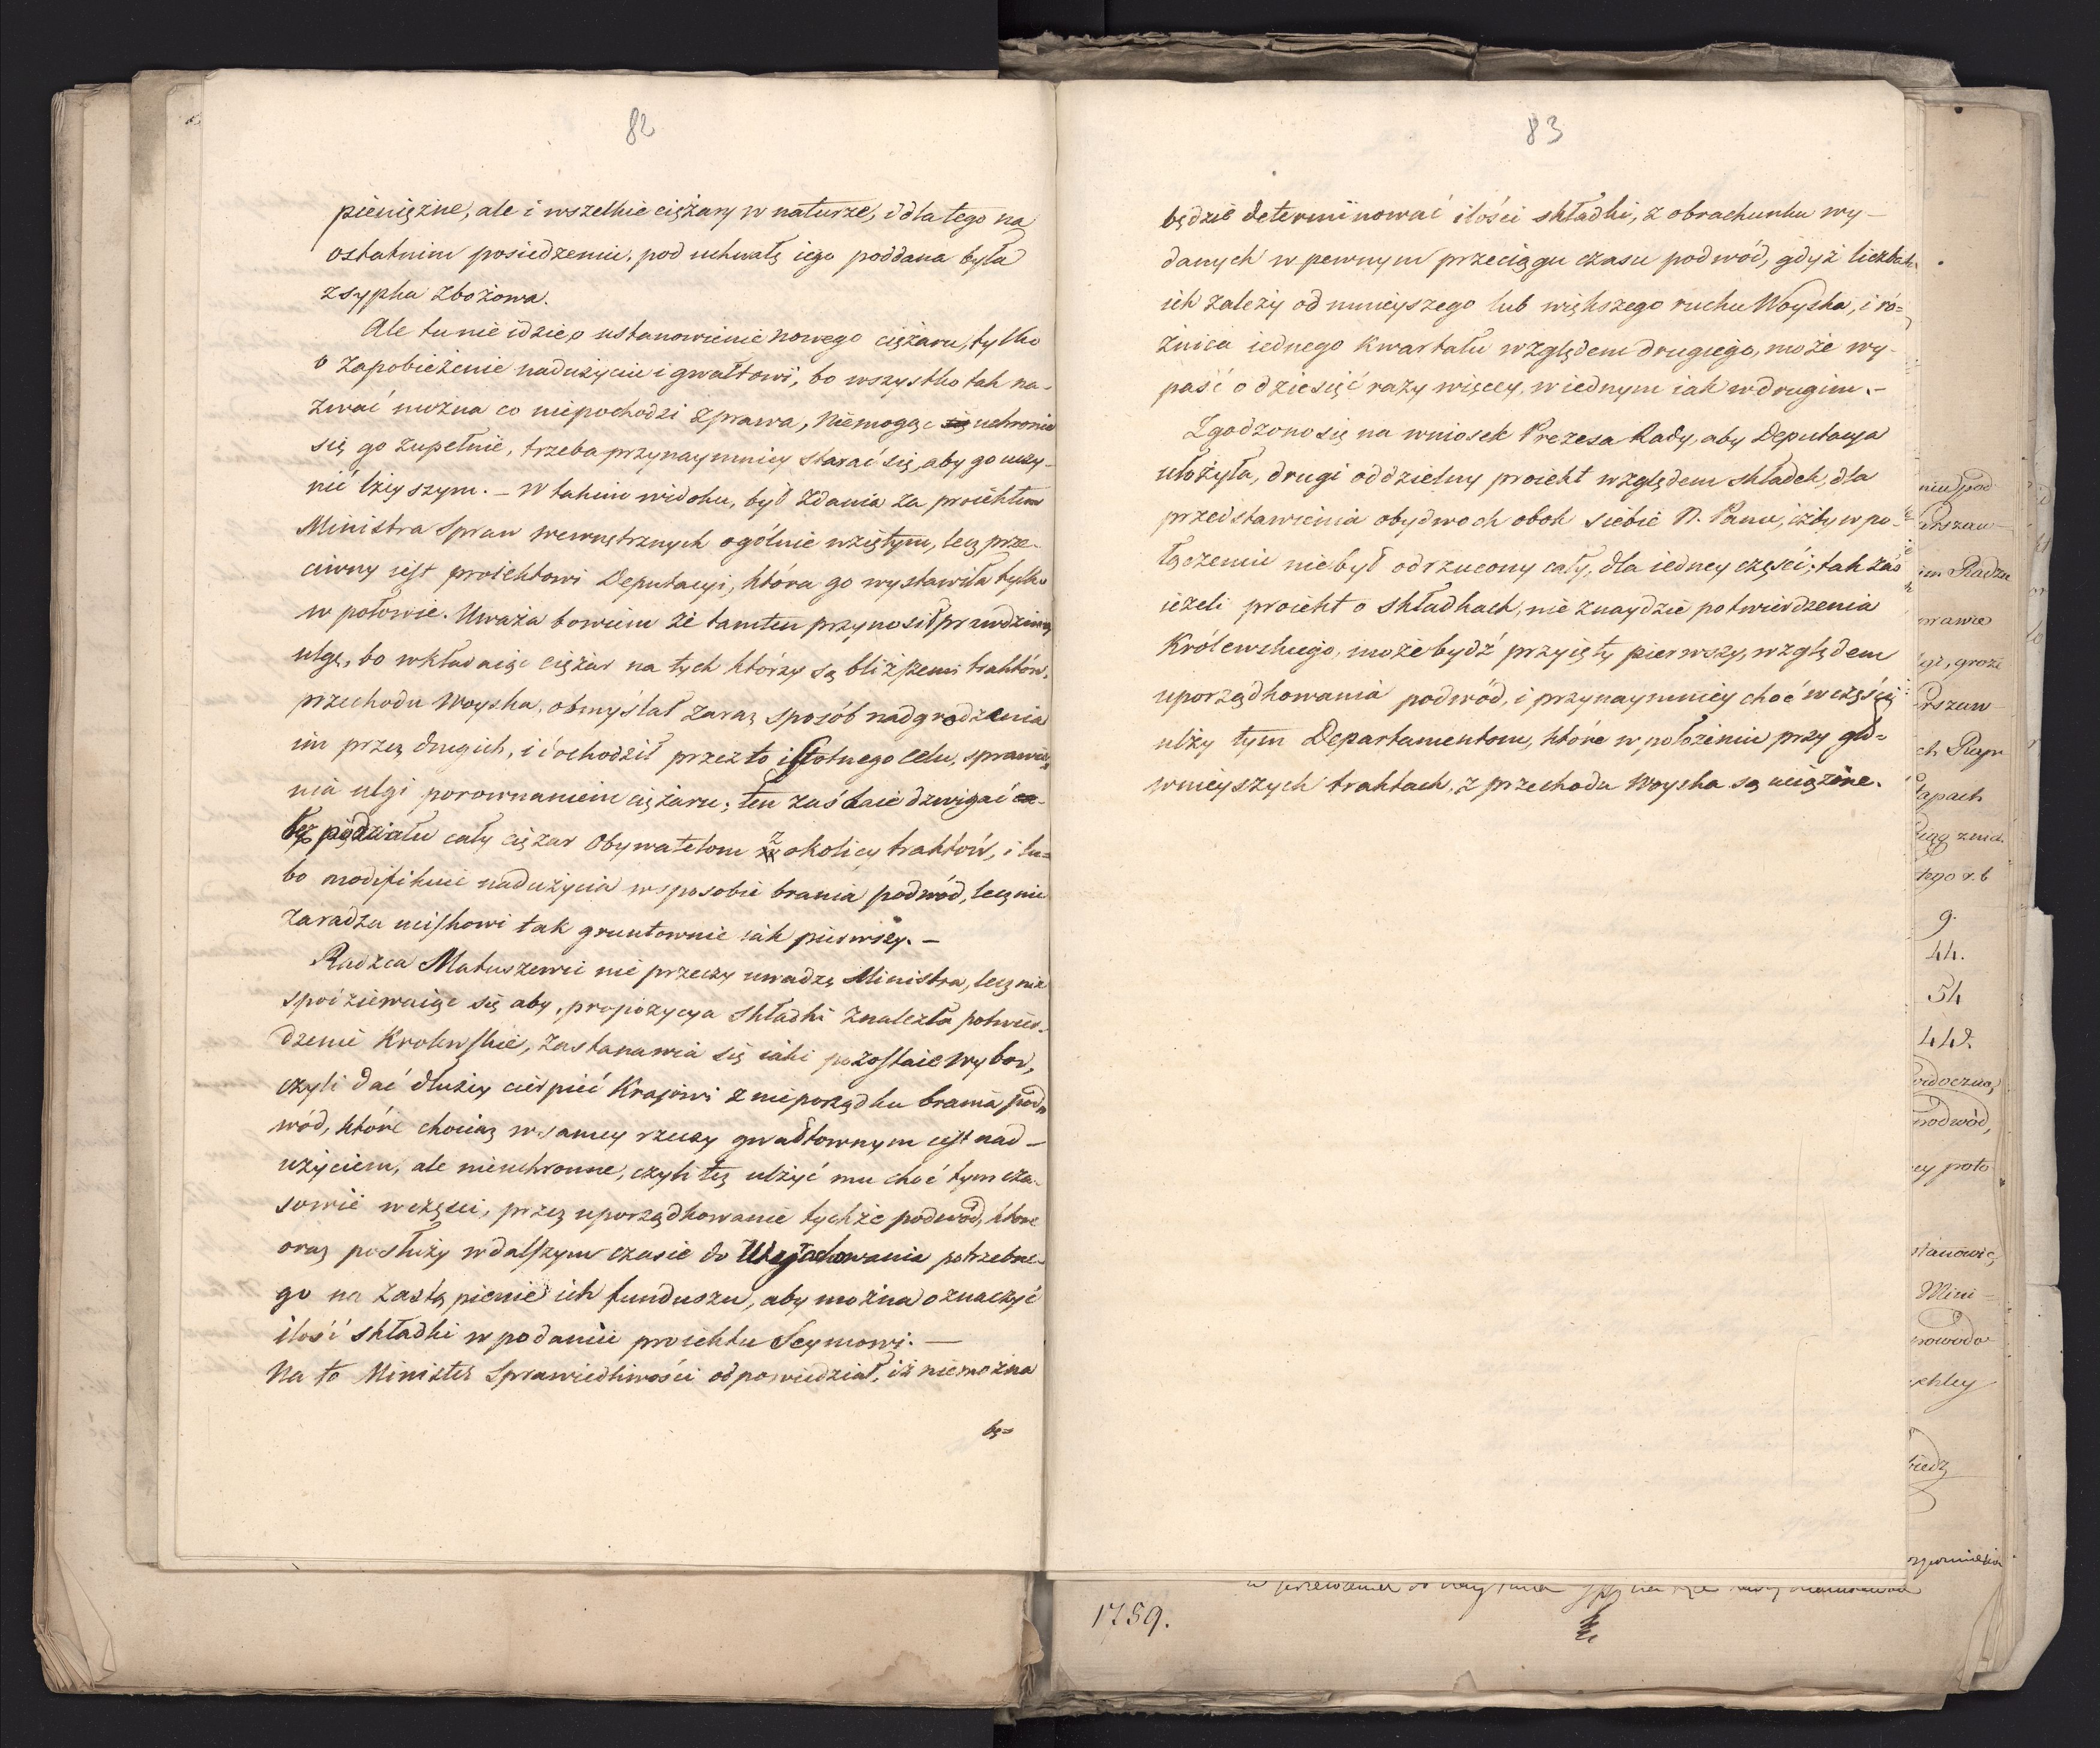 82
pieniężne, ale i wszelkie ciężary w naturze, i dla tego na
ostatnim posiedzeniu, pod uchwałę iego poddana była
zsypka zbożowa.
Ale tu nie idzie o ustanowienie nowego ciężaru, tylko
o zapobieżenie nadużyciu i gwałtowi, bo wszystko tak na-
zwać można co niepochodzi z prawa, Niemogąc się uchronić
się go zupełnie, trzeba przynaymniey starać się, aby go uczy-
nić lżeyszym. – W takim widoku, był zdania za proiektem
Ministra Spraw wewnętrznych ogólnie wziętym, lecz prze-
ciwny iest proiektowi Deputacyi, która go wystawiła tylko
w połowie. Uważa bowiem że tamten przynosił prawdziwą
ulgę, bo wkładaiąc ciężar na tych którzy są bliższemi traktów,
przechodu Woyska, obmyślał zaraz sposób nadgrodzenia
im przez drugich, i dochodził przez to istotnego celu, sprawie-
nia ulgi porownaniem ciężaru; ten zaś daie dzwigać
bez podziału cały ciężar Obywatelom z okolicy traktów, i lu-
bo modyfikuie nadużycia w sposobie brania podwód, lecz nie
zaradza uciskowi tak gruntownie iak pierwszy. –
Radzca Matuszewic nie przeczy uwadze Ministra, lecz nie
spodziewaiąc się aby propozycya składki znalezła potwier-
dzenie Krolewskie, zastanawia się iaki pozostaie wybor,
czyli dać dłużey cierpieć Kraiowi z nieporządku brania pod-
wód, które chociaż w samey rzeczy gwałtownym iest nad-
użyciem, ale nieuchronne, czyli też ulżyć mu choć tymcza-
sowie w części, przez uporządkowanie tychże podwód, które
oraz posłuży w dalszym czasie do potrzebne-
go na zastąpienie ich funduszu, aby można oznaczyć
ilość składki w podaniu proiektu Seymowi. –
Na to Minister Sprawiedliwości odpowiedział, iż niemożna
bę=
83
będzie determinować ilości składki, z obrachunku wy-
danych w pewnym przeciągu czasu podwód, gdyż liczba
ich zależy od mnieyszego lub większego ruchu Woyska, i ró=
żnica iednego kwartału względem drugiego, może wy-
paść o dziesięć razy więcey, w iednym iak w drugim. –
Zgodzono się na wniosek Prezesa Rady, aby Deputacya
ułożyła, drugi oddzielny proiekt względem składek, dla
przedstawienia obydwoch obok siebie N. Panu, iżby w po-
łączeniu niebył odrzucony cały, dla iedney części; tak zaś
ieżeli proiekt o składkach, nie znaydzie potwierdzenia
Królewskiego, może bydź przyięty pierwszy, względem
uporządkowania podwód, i przynaymniey choć w części
ulży tym Departamentom, które w położeniu przy głó=
wnieyszych traktach, z przechodu Woyska są uciążone.
1759.
9.
44.
54
442.
podwód,
Mini=